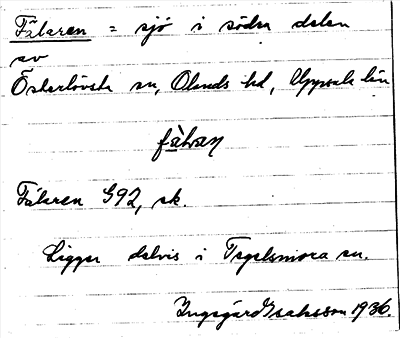 Fälaren = sjö i södra delen
av
Österlövsta sn, Olands hd, Uppsala län
Fälaren G92, sk.
Ligger delvis i Tegelsmora sn.
Ingegärd Isaksson 1936.